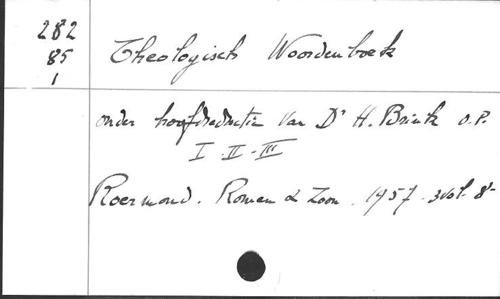 282
85
1
Theologisch Woordenboek
onder hoofdredactie van Dr H. Brink O.P.
I-II-III
Roermond. Romen & Zoon. 1957. 3 vol. 8-